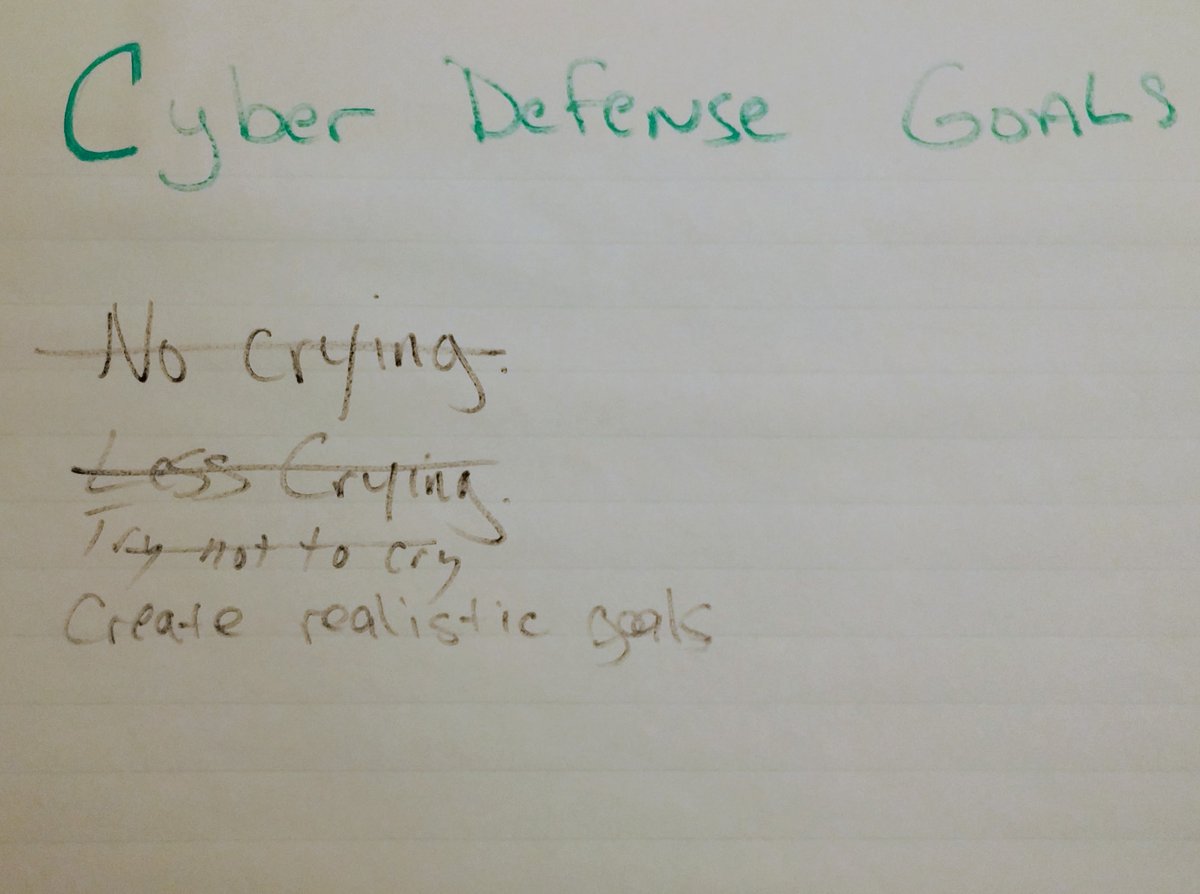 Cyber Defense Goals
No Crying.
Less Crying.
Try not to cry
Create realistic goals